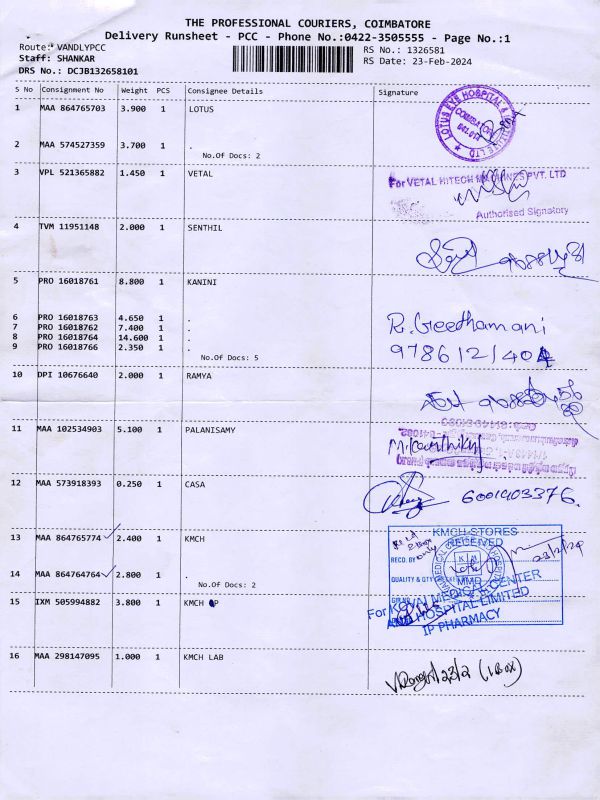 THE PROFESSIONAL COURIERS, COIMBATORE
Delivery Runsheet - PCC - Phone No.:0422-3505555 - Page No.:1
Route: VANDLYPCC
RS No.: 1326581
Staff: SHANKAR
RS Date: 23-Feb-2024
DRS No.: DCJB132658101
S No Consignment No Weight PCS Consignee Details Signature
1 MAA 864765703 3.900 1 LOTUS
LOTUS EYE HOSPITAL &
COIMBATORE
2 MAA 574527359 3.700 1 .
No.Of Docs: 2
3 VPL 521365882 1.450 1 VETAL
For VETAL HITECH MACHINES PVT. LTD
Authorised Signatory
4 TVM 11951148 2.000 1 SENTHIL
5 PRO 16018761 8.800 1 KANINI
6 PRO 16018763 4.650 1 .
7 PRO 16018762 7.400 1 .
8 PRO 16018764 14.600 1 .
9 PRO 16018766 2.350 1 .
No.Of Docs: 5
R. Geethamani
10 DPI 10676640 2.000 1 RAMYA
11 MAA 102534903 5.100 1 PALANISAMY
M. Karthik
12 MAA 573918393 0.250 1 CASA
6001403376.
13 MAA 864765774 2.400 1 KMCH
KMCH-STORES
RECEIVED
RECD. BY
23/2/24
14 MAA 864764764 2.800 1 .
No.Of Docs: 2
QUALITY & QTY
MMD
15 IXM 505994882 3.800 1 KMCH OP
For KOVAI MEDICAL CENTER
AND HOSPITAL LIMITED
IP PHARMACY
16 MAA 298147095 1.000 1 KMCH LAB
23/2 (1 Box)